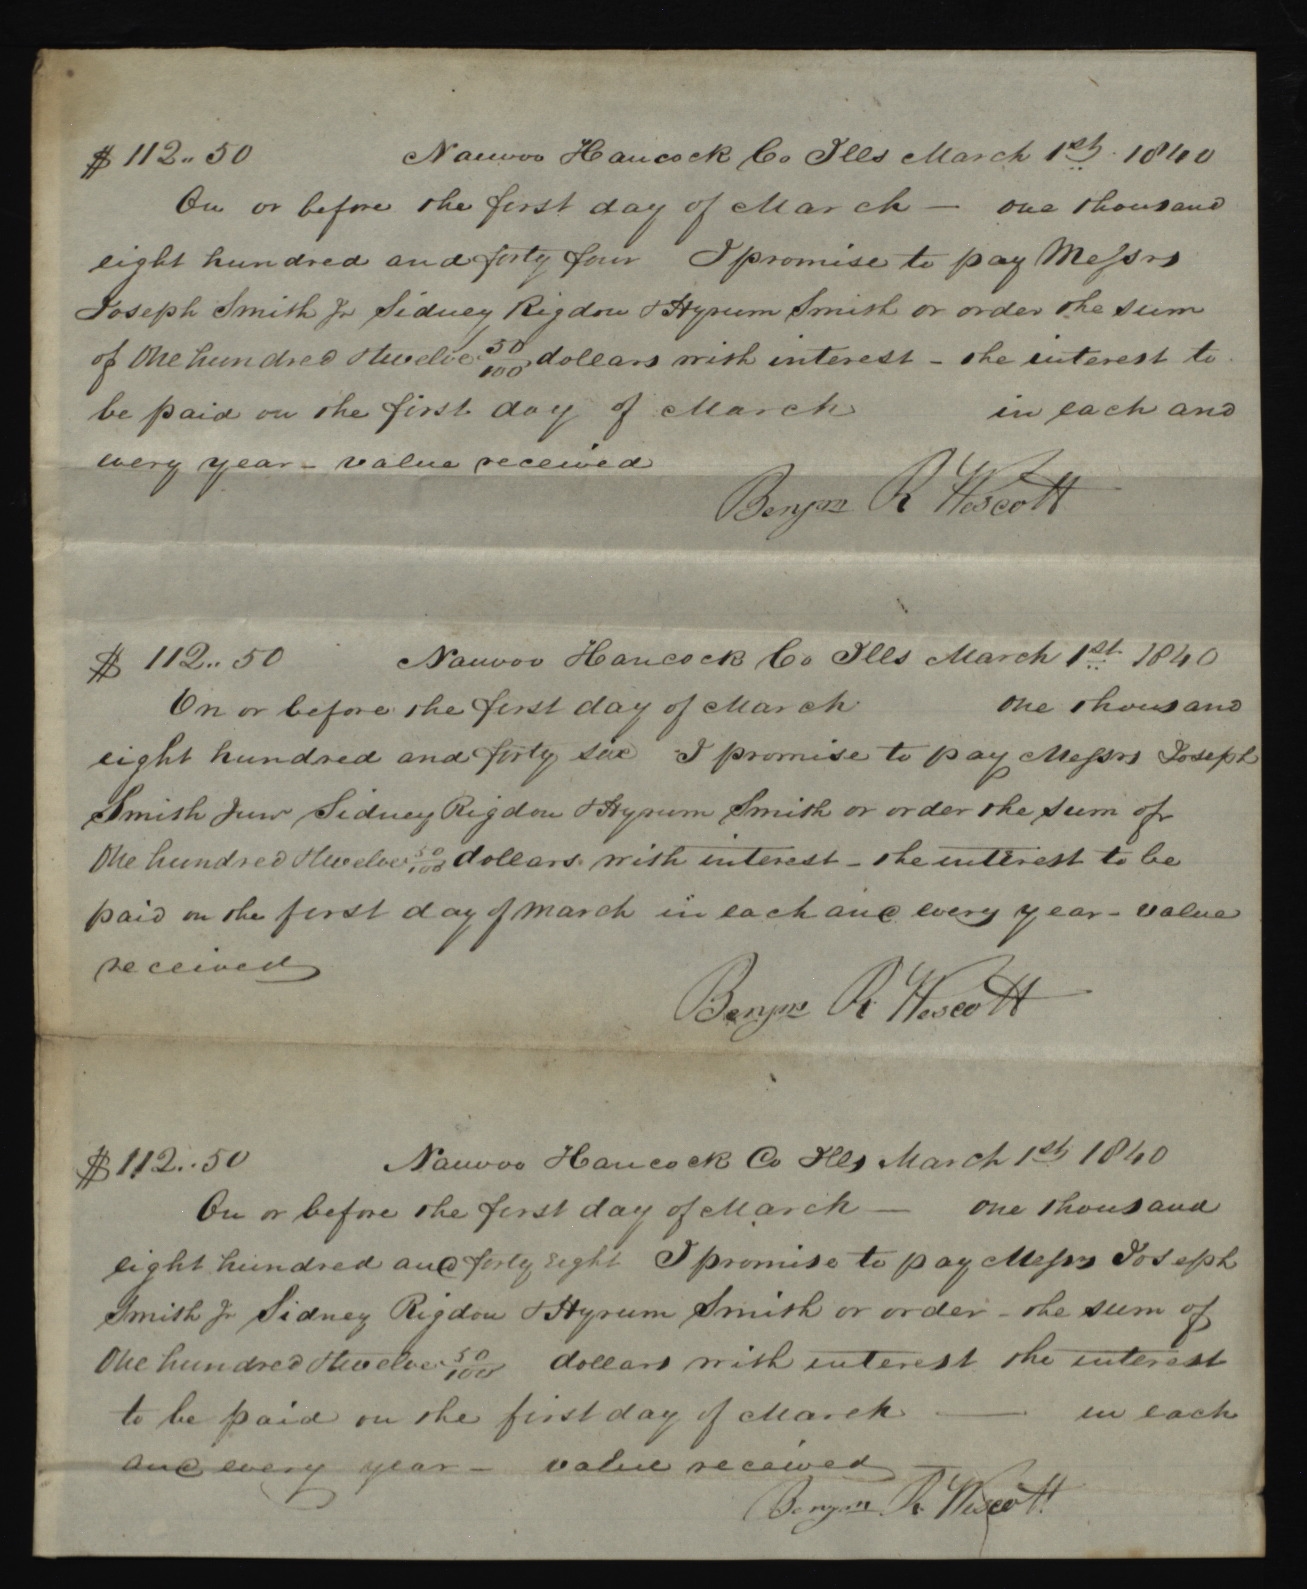 $ 112.. 50 Nauvoo Hancock Co Ills March 1st 1840
On or before the first day of March — one thousand
eight hundred and forty four I promise to pay Messrs
Joseph Smith Jr Sidney Rigdon & Hyrum Smith or order the sum
of One hundred & twelve 50/100 dollars with interest – the interest to
be paid on the first day of March in each and
every year – value received
Benjm R Wescott
$ 112.. 50 Nauvoo Hancock Co Ills March 1st 1840
On or before the first day of March one thousand
eight hundred and forty six I promise to pay Messrs Joseph
Smith Junr Sidney Rigdon & Hyrum Smith or order the sum of
One hundred & twelve 50/100 dollars with interest – the interest to be
paid on the first day of March in each and every year – value
received
Benjm R Wescott
$ 112.. 50 Nauvoo Hancock Co Ills March 1st 1840
On or before the first day of March — one thousand
eight hundred and forty Eight I promise to pay Messrs Joseph
Smith Jr Sidney Rigdon & Hyrum Smith or order – the sum of
One hundred & twelve 50/100 dollars with interest the interest
to be paid on the first day of March — in each
and every year – value received —
Benjm R. Wescott